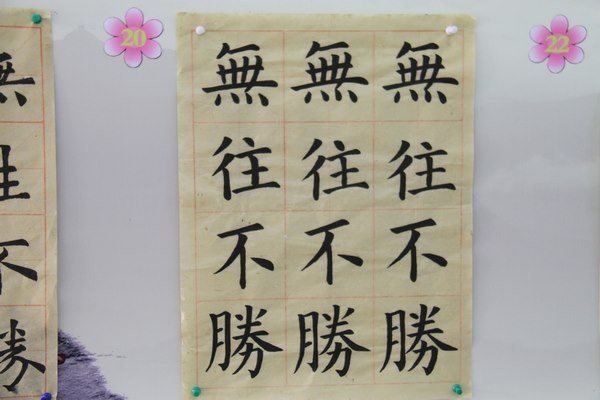 20
22
無往不勝
無往不勝
無往不勝
無往不勝